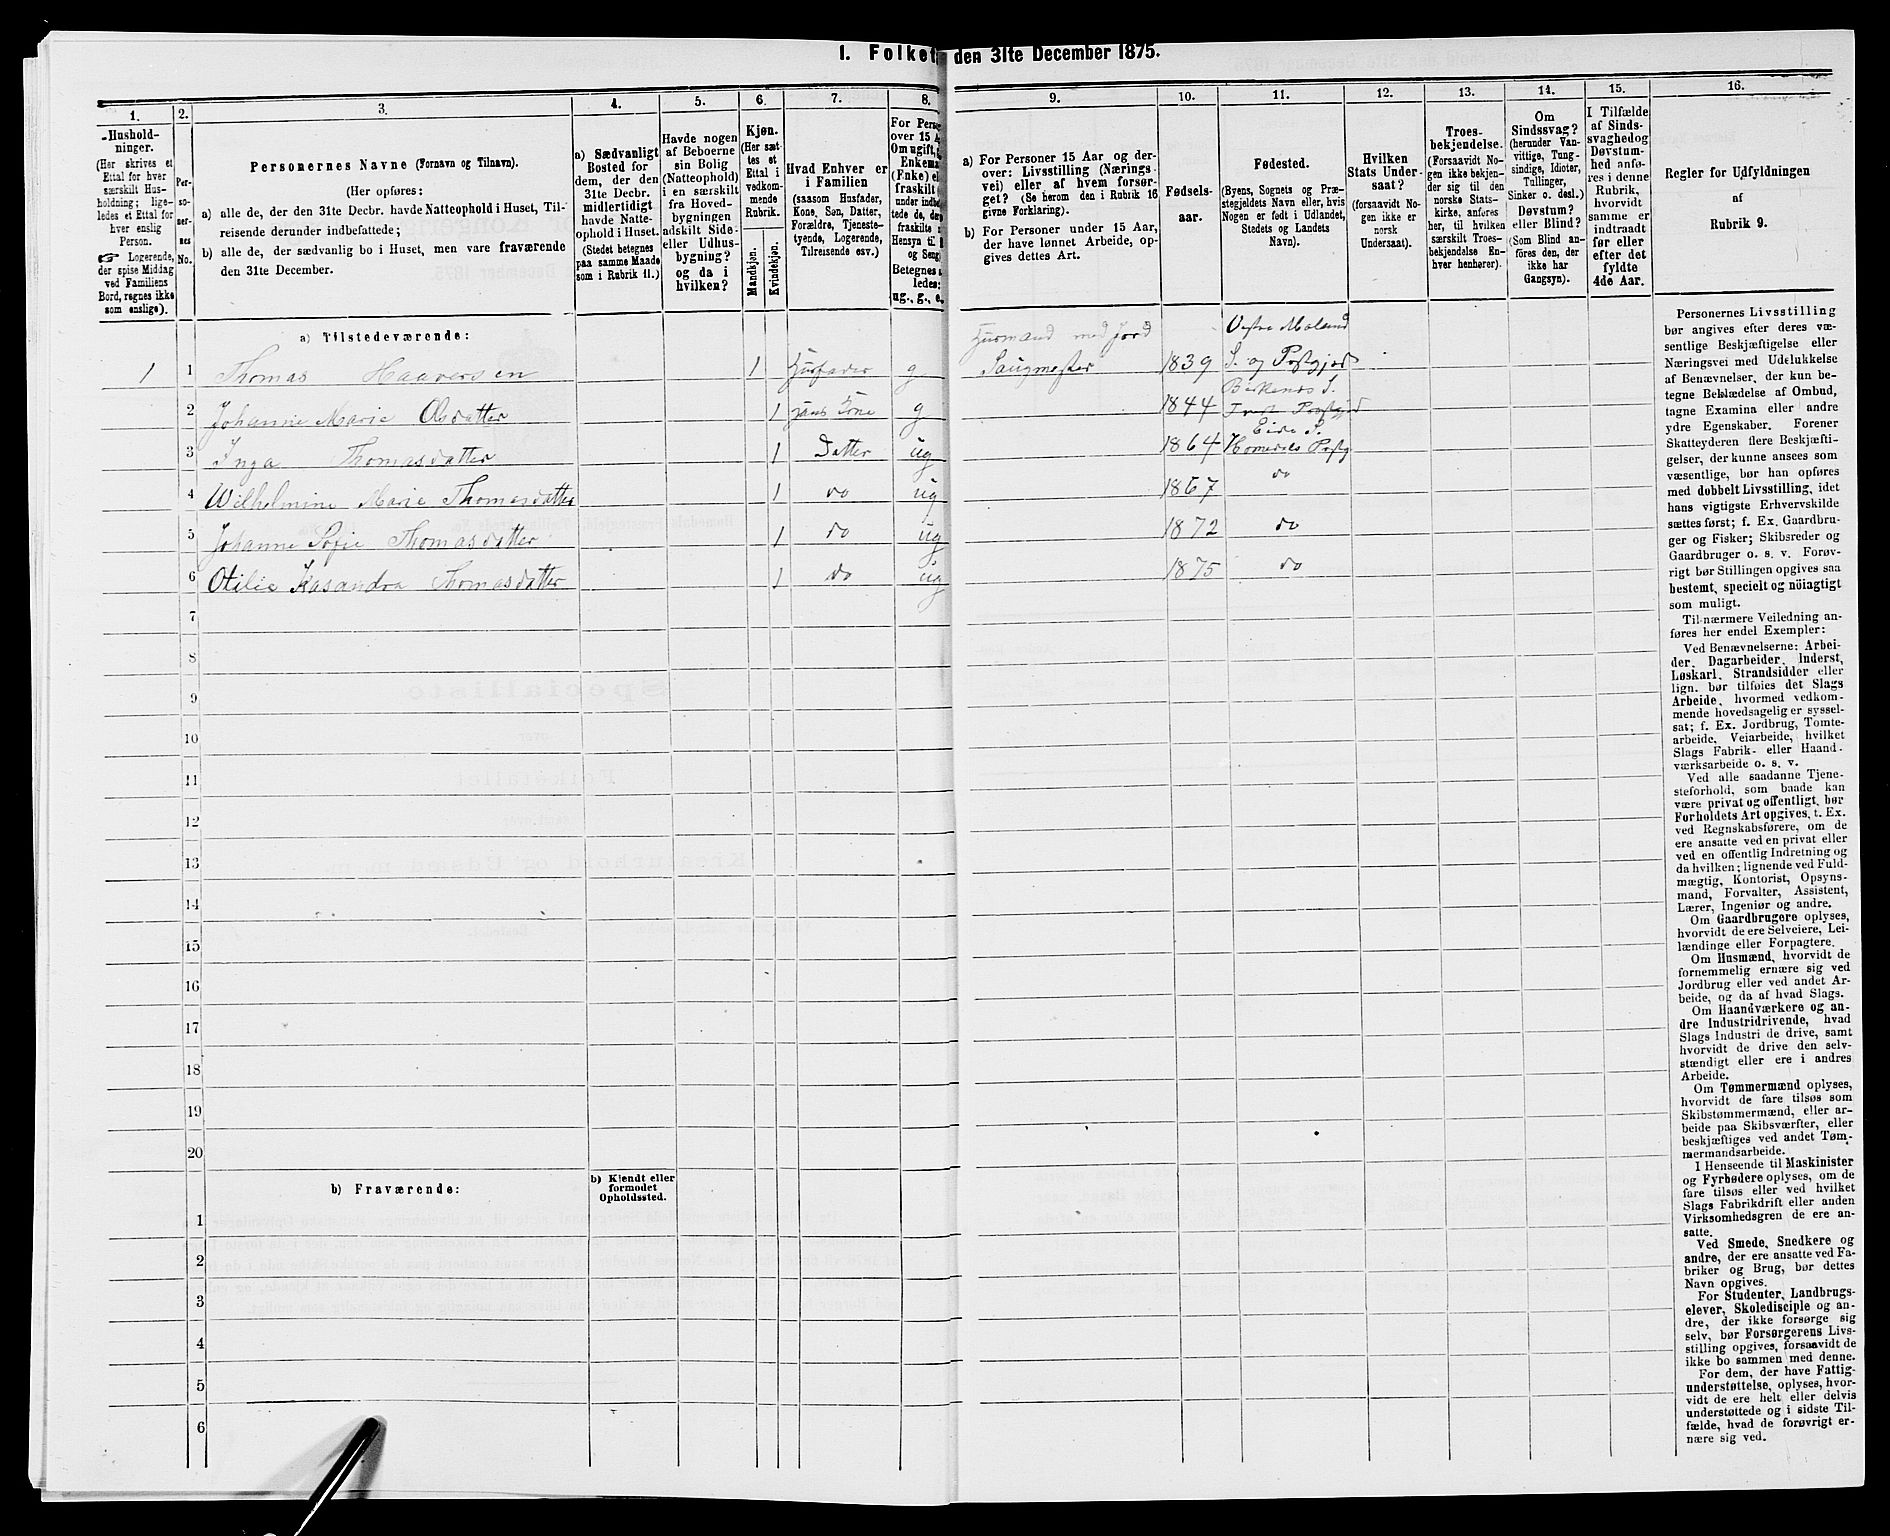 I. Folket
den 31te December 1875.
1.
-Hushold-
ninger.
(Her skrives et
Ettal for hver
særskilt Hus-
holdning; lige-
ledes et Ettal for
hver enslig
Person.
☞ Logerende,
der spise Middag
ved Familiens
Bord, regnes ikke
som enslige).
2.
Per-
so-
ner-
nes
No.
3.
Personernes Navne (Fornavn og Tilnavn).
(Her opføres:
a) alle de, der den 31te Decbr. havde Natteophold i Huset, Til-
reisende derunder indbefattede;
b) alle de, der sædvanlig bo i Huset, men vare fraværende
den 31te December.
4.
a) Sædvanligt
Bosted for
dem, der den
31te Decbr.
midlertidigt
havde Natte-
ophold i Huset.
(Stedet betegnes
paa samme Maade
som i Rubrik 11.)
5.
Havde nogen
af Beboerne
sin Bolig
(Natteophold)
i en særskilt
fra Hoved-
bygningen
adskilt Side-
eller Udhus-
bygning?
og da i
hvilken?
6.
Kjøn.
(Her sæt-
tes et
Ettal i
vedkom-
mende
Rubrik.
Mandkjøn.
Kvindekjøn.
7.
Hvad Enhver er
i Familien
(saasom Husfader,
Kone, Søn, Datter,
Forældre, Tjeneste-
tyende, Logerende,
Tilreisende osv.)
8.
For Perso
over 15 A
Om ugift,
Enkema
(Enke) el
fraskilt
under indbe
tede de, der
fraskilte
Hensyn til
og Seng
Betegnes
ledes:
ug., g., e.
9.
a) For Personer 15 Aar og der-
over: Livsstilling (Nærings-
vei) eller af hvem forsør-
get? (Se herom den i Rubrik 16
givne Forklaring).
b) For Personer under 15 Aar,
der have lønnet Arbeide, op-
gives dettes Art.
10.
Fødsels-
aar.
11.
Fødested.
(Byens, Sognets og Præ-
stegjeldets Navn eller, hvis
Nogen er født i Udlandet,
Stedets og Landets
Navn).
12.
Hvilken
Stats Under-
saat?
(forsaavidt No-
gen ikke er
norsk
Undersaat).
13.
Troes-
bekjendelse.
(Forsaavidt No-
gen ikke bekjen-
der sig til den
norske Stats-
kirke, anføres
her, til hvilken
særskilt Troes-
bekjendelse En-
hver henhører).
14.
Om
Sindssvag?
(herunder Van-
vittige, Tung-
sindige, Idioter,
Tullinger,
Sinker o. desl.)
Døvstum?
eller Blind?
(Som Blind an-
føres den, der
ikke har
Gangsyn).
15.
I Tilfælde
af Sinds-
svaghed og
Døvstum-
hed anfø-
res i denne
Rubrik,
hvorvidt
samme er
indtraadt
før eller
efter det
fyldte
4de Aar.
16.
Regler for Udfyldningen
af
Rubrik 9.
a) Tilstedeværende:
Husmand med Jord
Vestre Moland
1 1 Thomas Haaversen 1 Husfader g Saugmester 1839 S. og Prstgjeld
Birkenes S.
2 Johanne Marie Olsdatter 1 hans Kone g 1844 Tveit Prstgjd
Eide S.
3 Inga Thomasdatter 1 Datter ug 1864 Homedals Prstg
4 Wilhelmine Marie Thomasdatter 1 do ug 1867 do
5 Johanne Sofie Thomasdatter 1 do ug 1872 do
6 Otilie Kasandra Thomasdatter 1 do ug 1875 do
7
8
9
10
11
12
13
14
15
16
17
18
19
20
b) Fraværende:
b) Kjendt eller
formodet
Opholdssted.
1
2
3
4
5
6
Personernes Livsstilling
bør angives efter deres væ-
sentlige Beskjæftigelse eller
Næringsvei med Udelukkelse
af Benævnelser, der kun be-
tegne Beklædelse af Ombud,
tagne Examina eller andre
ydre Egenskaber. Forener
Skatteyderen flere Beskjæfti-
gelser, der kunne ansees som
væsentlige, bør han opføres
med dobbelt Livsstilling, idet
hans vigtigste Erhvervskilde
sættes først; f. Ex. Gaardbru-
ger og Fisker; Skibsreder og
Gaardbruger o. s. v. Forøv-
rigt bør Stillingen opgives saa
bestemt, specielt og nöiagtigt
som muligt.
Til nærmere Veiledning an-
føres her endel Exempler:
Ved Benævnelserne: Arbei-
der, Dagarbeider, Inderst,
Løskarl, Strandsidder eller
lign. bør tilføies det Slags
Arbeide, hvormed vedkom-
mende hovedsagelig er syssel-
sat; f. Ex. Jordbrug, Tomte-
arbeide, Veiarbeide, hvilket
Slags Fabrik- eller Haand-
værksarbeide o. s. v.
Ved alle saadanne Tjene-
steforhold, som baade kan
være privat og offentligt, bør
Forholdets Art opgives, t. Ex.
ved Regnskabsførere, om de
ere ansatte ved en privat eller
ved en offentlig Indretning og
da hvilken; lignende ved Fuld-
mægtig, Kontorist, Opsyns-
mand, Forvalter, Assistent,
Lærer, Ingeniør og andre.
Om Gaardbrugere oplyses,
hvorvidt de ere Selveiere, Lei-
lændinge eller Forpagtere.
Om Husmænd, hvorvidt de
fornemmelig ernære sig ved
Jordbrug eller ved andet Ar-
beide, og da af hvad Slags.
Om Haandværkere og an-
dre Industridrivende, hvad
Slags Industri de drive, samt
hvorvidt de drive den selv-
stændigt eller ere i andres
Arbeide.
Om Tømmermænd oplyses,
hvorvidt de fare tilsøs som
Skibstømmermænd, eller ar-
beide paa Skibsværfter, eller
beskjæftiges ved andet Tøm-
mermandsarbeide.
I Henseende til Maskinister
og Fyrbødere oplyses, om de
fare tilsøs eller ved hvilket
Slags Fabrikdrift eller anden
Virksomhedsgren de ere an-
satte.
Ved Smede, Snedkere og
andre, der ere ansatte ved Fa-
briker og Brug, bør dettes
Navn opgives.
For Studenter, Landbrugs-
elever, Skoledisciple og an-
dre, der ikke forsørge sig
selv, bør Forsørgerens Livs-
stilling opgives, forsaavidt de
ikke bo sammen med denne.
For dem, der have Fattig-
understøttelse, oplyses, hvor-
vidt de ere helt eller delvis
understøttede og i sidste Til-
fælde, hvad de forøvrigt er-
nære sig ved.